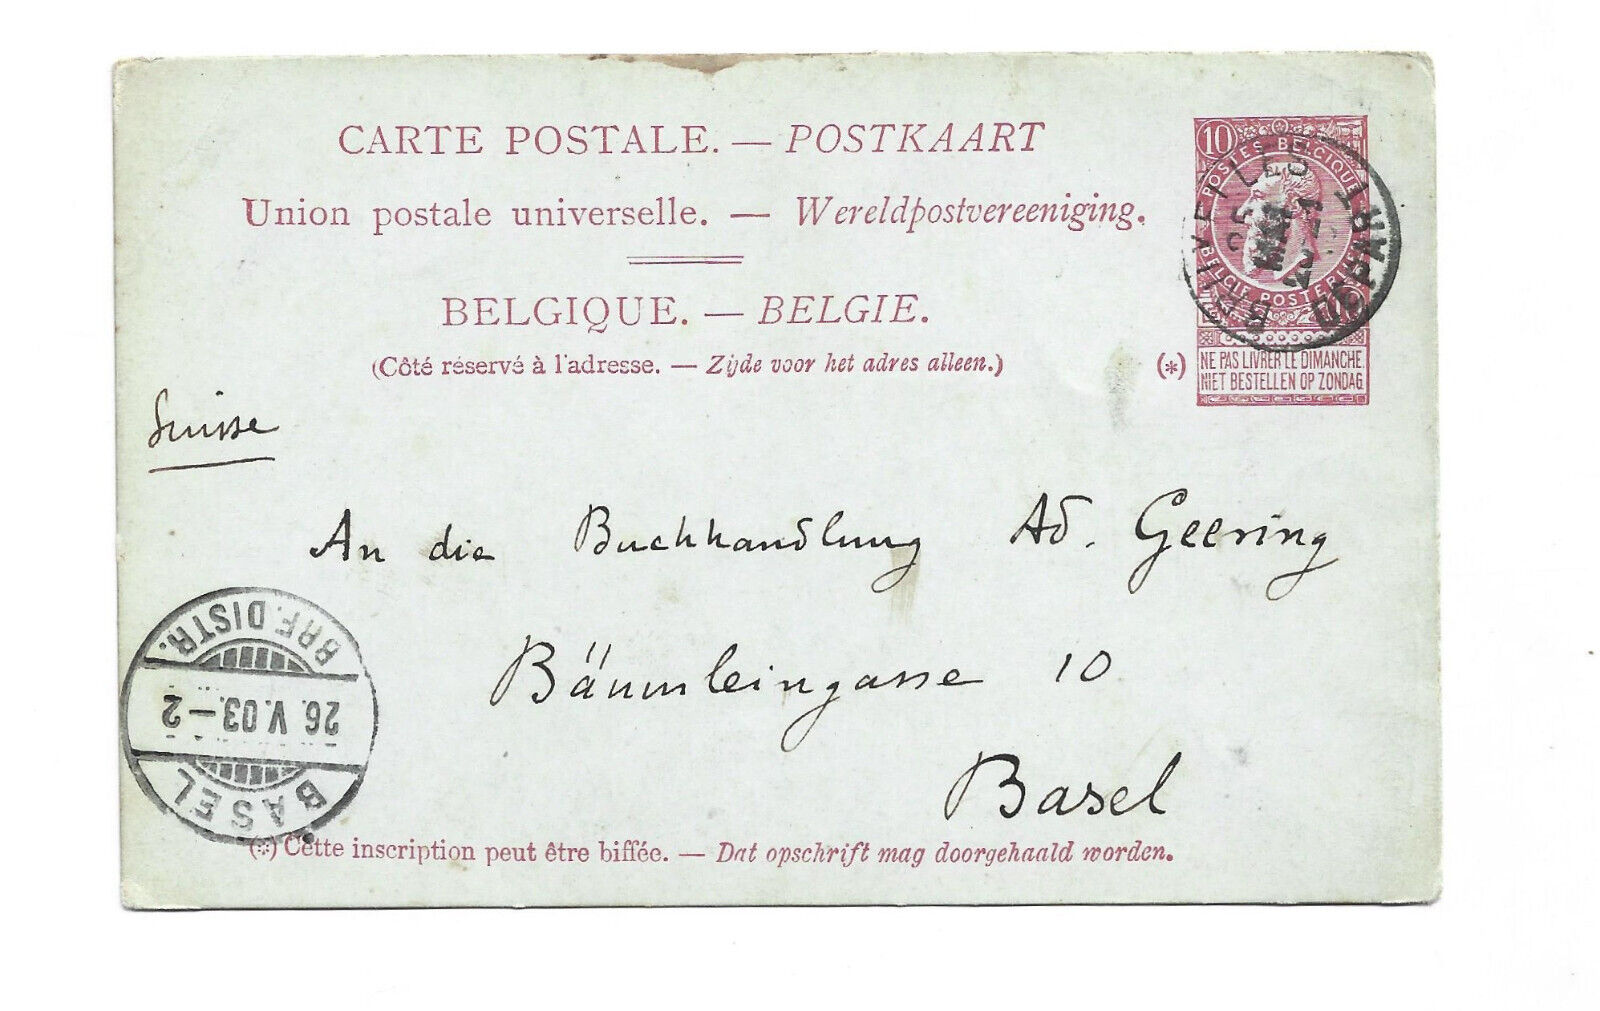 CARTE POSTALE. — POSTKAART
Union postale universelle. — Wereldpostvereeniging.
BELGIQUE. — BELGIE.
(Côté réservé à l'adresse. — Zijde voor het adres alleen.)
(*)
10
POSTES BELGIQUE
BELGIE POSTERIJEN
NE PAS LIVRER LE DIMANCHE
NIET BESTELLEN OP ZONDAG
DEPART
25
MAI
Suisse
An die Buchhandlung Ad. Geering
Bäumleingasse 10
Basel
BASEL
26. V. 03. – 2
BRF. DISTR.
(*) Cette inscription peut être biffée. — Dat opschrift mag doorgehaald worden.